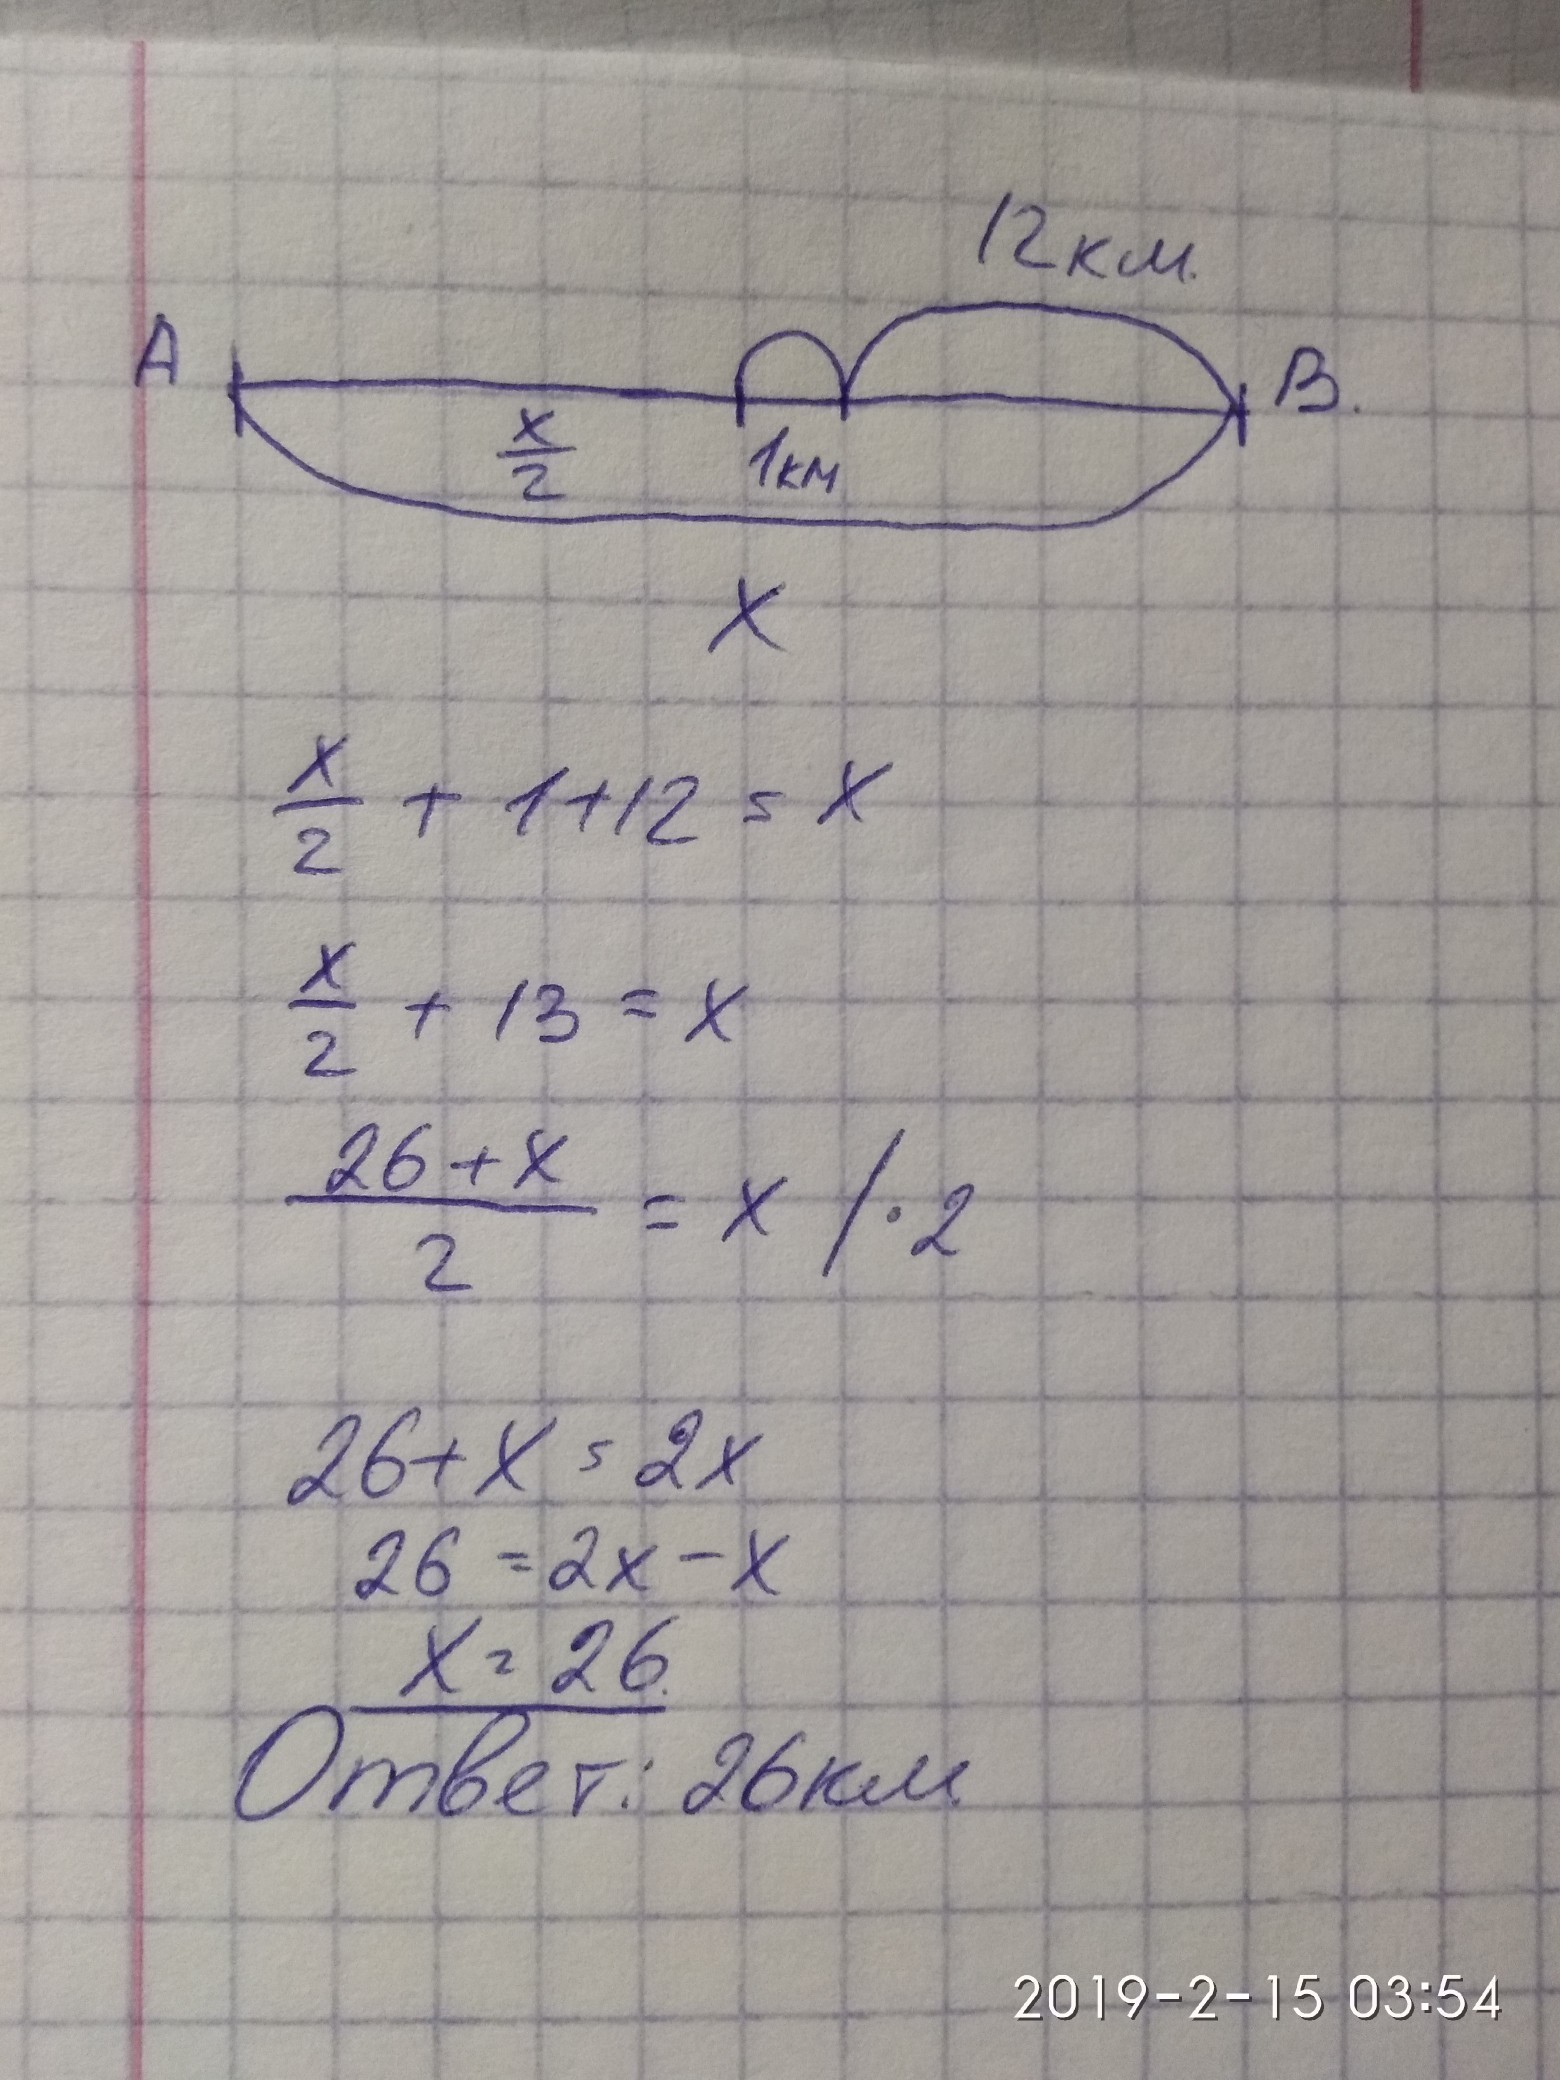 12км.
A
B.
x/2
1км
x
x/2 + 1+12 = x
x/2 + 13 = x
26+x/2 = x /·2
26+x = 2x
26 = 2x-x
x = 26.
Ответ: 26км
2019-2-15 03:54